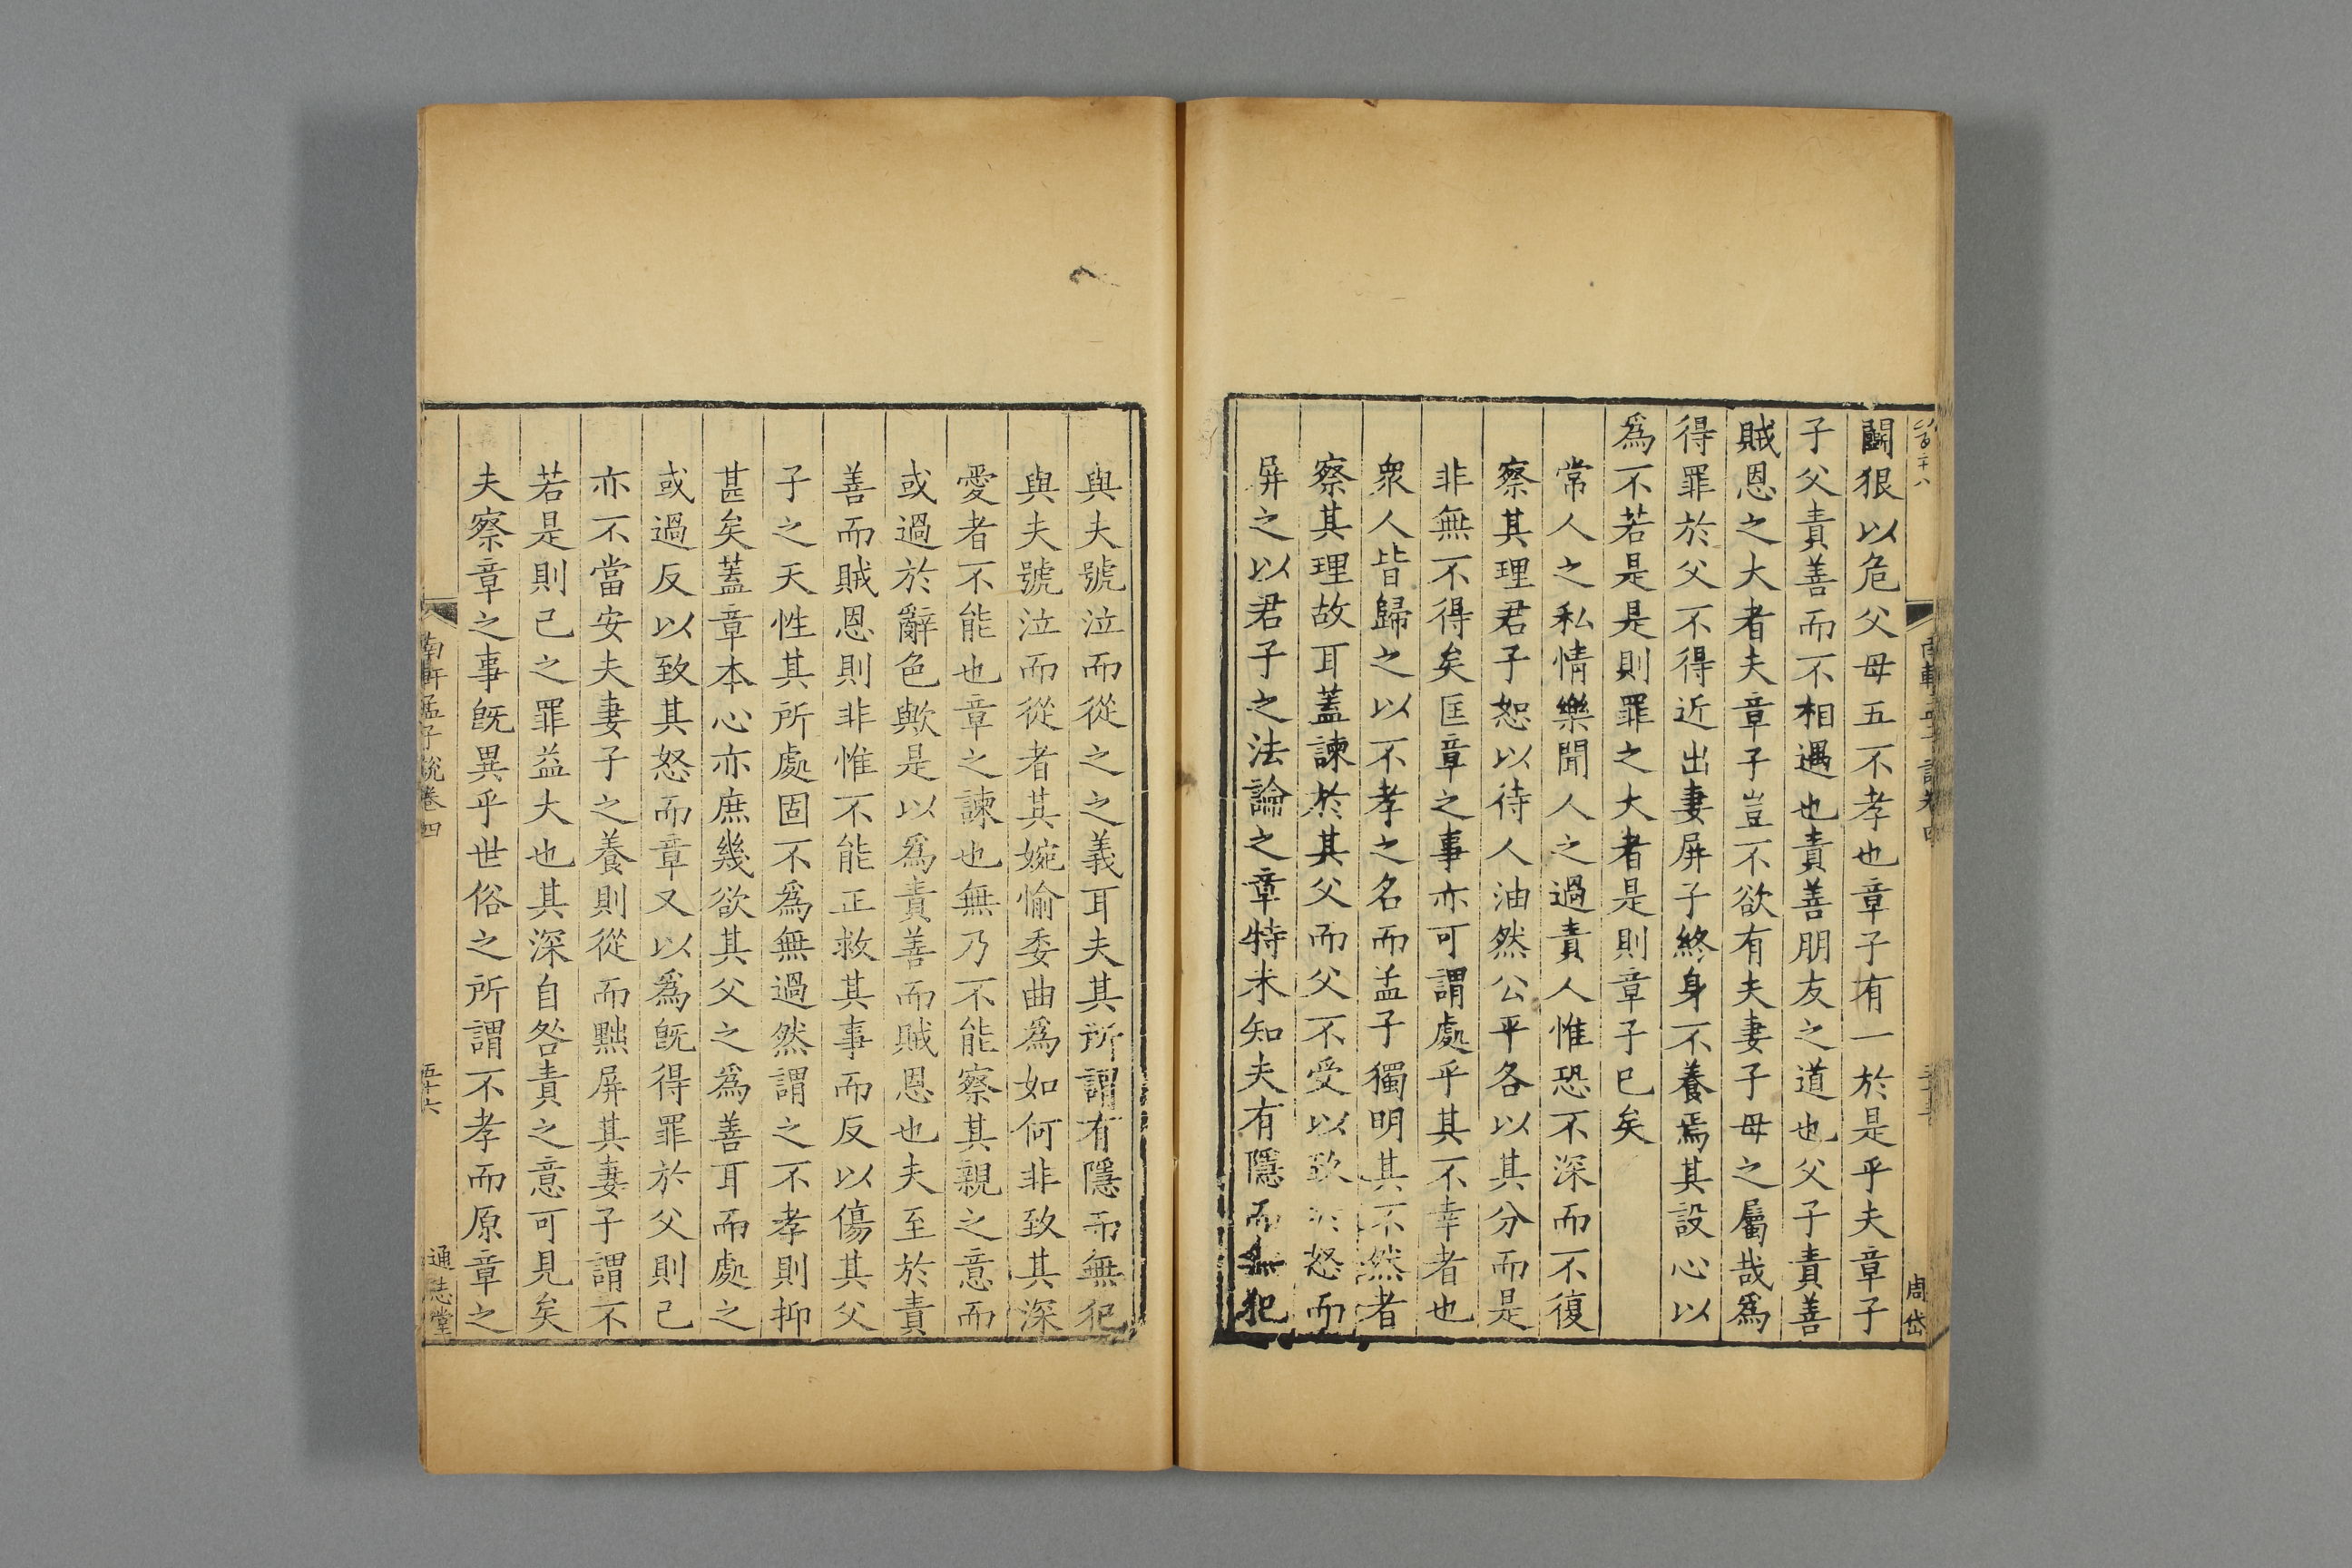 鬭狠以危父母五不孝也章子有一於是乎夫章子
子父責善而不相遇也責善朋友之道也父子責善
賊恩之大者夫章子豈不欲有夫妻子母之屬哉爲
得罪於父不得近出妻屏子終身不養焉其設心以
爲不若是是則罪之大者是則章子已矣
常人之私情樂聞人之過責人惟恐不深而不復
察其理君子恕以待人油然公平各以其分而是
非無不得矣匡章之事亦可謂處乎其不幸者也
衆人皆歸之以不孝之名而孟子獨明其不然者
察其理故耳蓋諫於其父而父不受以致於怒而
屏之以君子之法論之章特未知夫有隱而無犯
周岱
與夫號泣而從之之義耳夫其所謂有隱而無犯
與夫號泣而從者其婉愉委曲爲如何非致其深
愛者不能也章之諫也無乃不能察其親之意而
或過於辭色歟是以爲責善而賊恩也夫至於責
善而賊恩則非惟不能正救其事而反以傷其父
子之天性其所處固不爲無過然謂之不孝則抑
甚矣蓋章本心亦庶幾欲其父之爲善耳而處之
或過反以致其怒而章又以爲旣得罪於父則己
亦不當安夫妻子之養則從而黜屏其妻子謂不
若是則己之罪益大也其深自咎責之意可見矣
夫察章之事旣異乎世俗之所謂不孝而原章之
南軒孟子說卷四
五十六
通志堂